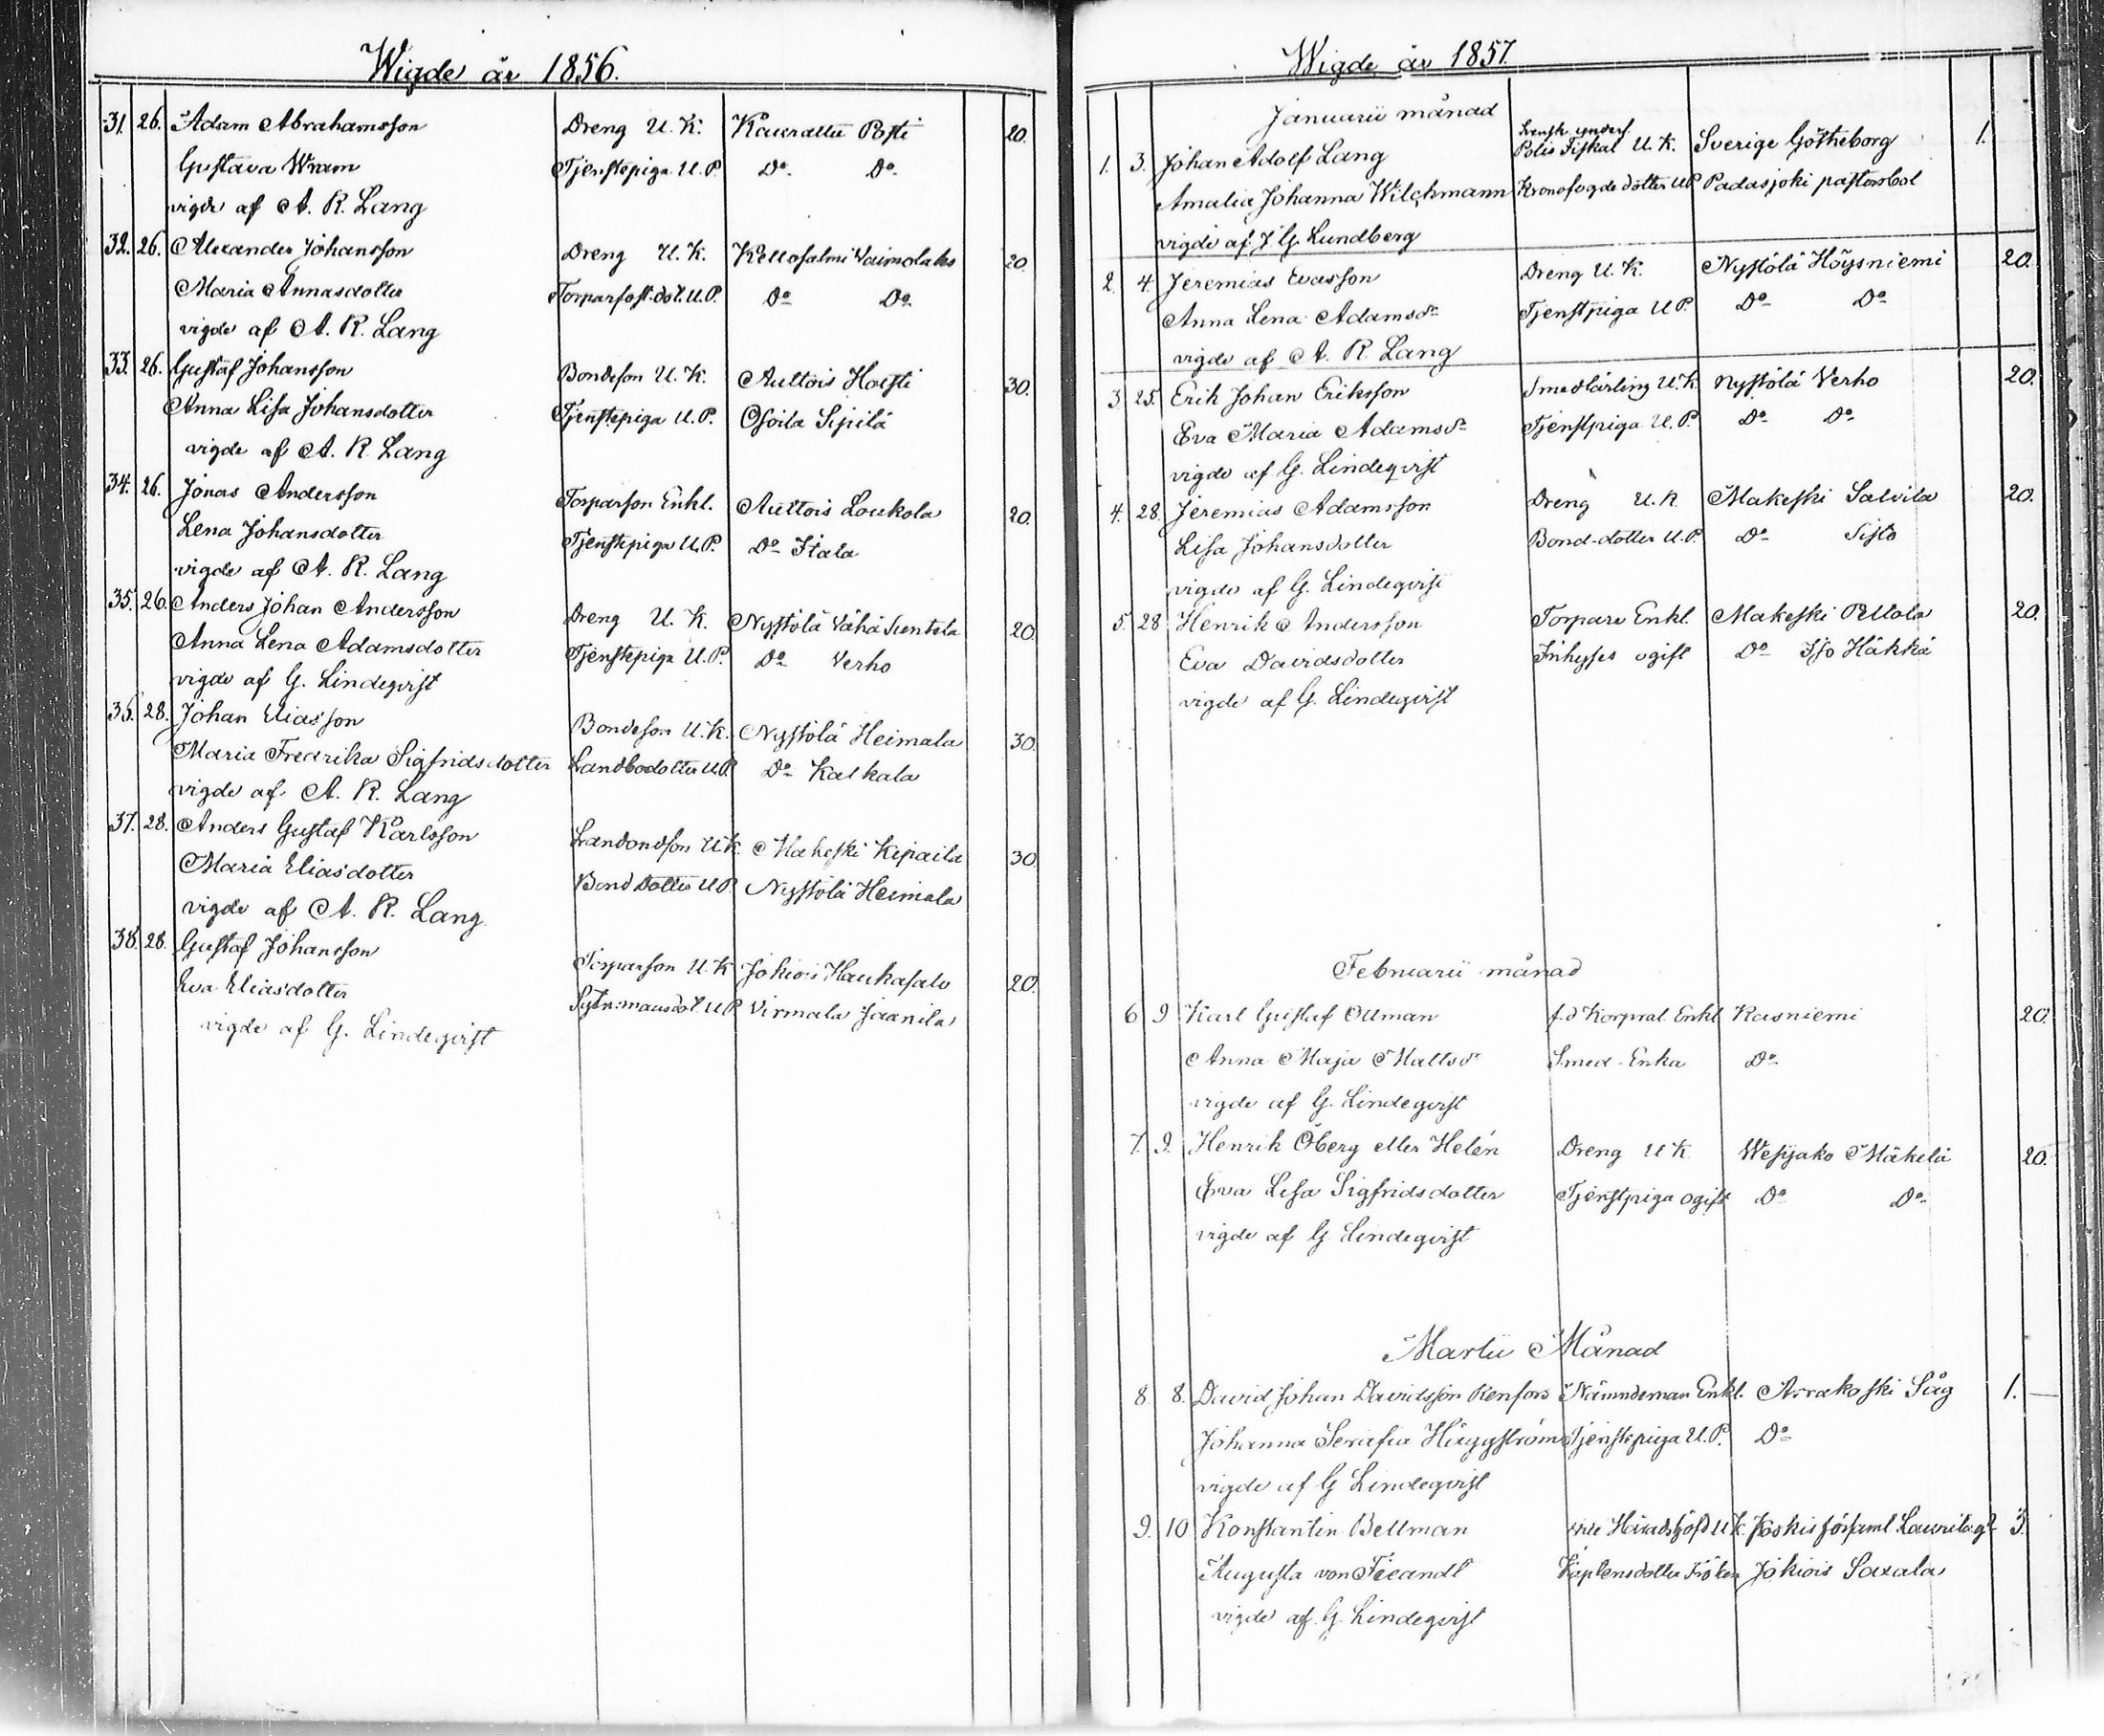 Wigde år 1856.
31. 26. Adam Abrahamsson Dreng U. K. Kaurattu Posti 20.
Gustava Wram Tjenstepiga U. P. Do Do
vigde af A. R. Lang
32. 26. Alexander Johansson Dreng U. K. Kellosalmi Vaimolaks 20.
Maria Annasdotter Torparfost.dot. U. P. Do Do
vigde af A. R. Lang
33. 26. Gustaf Johansson Bondeson U. K. Auttois Hoisti 30.
Anna Lisa Johansdotter Tjenstepiga U. P. Osoila Sipilä
vigde af A. R. Lang
34. 26. Jonas Andersson Torparson Enkl. Auttois Loukola 20.
Lena Johansdotter Tjenstepiga U. P. Do Itala
vigde af A. R. Lang
35. 26. Anders Johan Andersson Dreng U. K. Nystölä Vähä Suntola 20.
Anna Lena Adamsdotter Tjenstepiga U. P. Do Verho
vigde af G. Lindeqvist
36. 28. Johan Eliasson Bondeson U. K. Nystölä Heimala 30.
Maria Fredrika Sigfridsdotter Landbodotter U. P. Do Kalkala
vigde af A. R. Lang
37. 28. Anders Gustaf Karlsson U. K. Makeski 30.
Maria Eliasdotter Bond dotter U. P. Nystölä Heimala
vigde af A. R. Lang
38. 28. Gustaf Johansson Torparson U. K. Jokiois Haukasalo 20.
Eva Eliasdotter U. P. Virmala Jaanila
vigde af G. Lindeqvist
Wigde år 1857.
Januarii månad
Svensk unders.
1. 3. Johan Adolf Lang Polis Fiskal U. K. Sverige Götheborg 1.
Amalia Johanna Wilckmann Kronofogde dotter U P Padasjoki pastorsbol
vigde af J G. Lundberg
2. 4. Jeremias Evasson Dreng U. K. Nystölä Höysniemi 20.
Anna Lena Adamsdr Tjenstpiga U P. Do Do
vigde af A. R. Lang
3. 25. Erik Johan Eriksson Smedlärling U. K. Nystölä Verho 20.
Eva Maria Adamsdr Tjenstpiga U. P. Do Do
vigde af G. Lindeqvist
4. 28. Jeremias Adamsson Dreng U. K. Makeski Salvila 20.
Lisa Johansdotter Bond-dotter U. P. Do Sisto
vigde af G. Lindeqvist
5. 28 Henrik Andersson Torpare Enkl. Makeski Ollola 20.
Eva Davidsdotter Inhyses ogift Do Iso Häkkä
vigde af G. Lindeqvist
Februarii månad
6 9 Karl Gustaf Ollman f.d Korpral Enkl Kasniemi 20.
Anna Maja Mattsdr Smed-Enka Do
vigde af G. Lindeqvist
7. 9. Henrik Öberg eller Helén Dreng U K Wesijako Mäkelä 20.
Eva Lisa Sigfridsdotter Tjenstpiga ogift Do Do
vigde af G. Lindeqvist
Martii Månad
8 8. David Johan Davidsson Renfors Nämndeman Enkl. Arrakoski Såg 1.
Johanna Serafia Häggström Tjenstepiga U. P. Do
vigde af G Lindeqvist
9. 10 Konstantin Bellman vice Häradshöfd U K. Koskis församl Laurila gd 3.
Augusta von Fieandt Kaptensdotter Fröken Jokiois Saxala
vigde af G. Lindeqvist